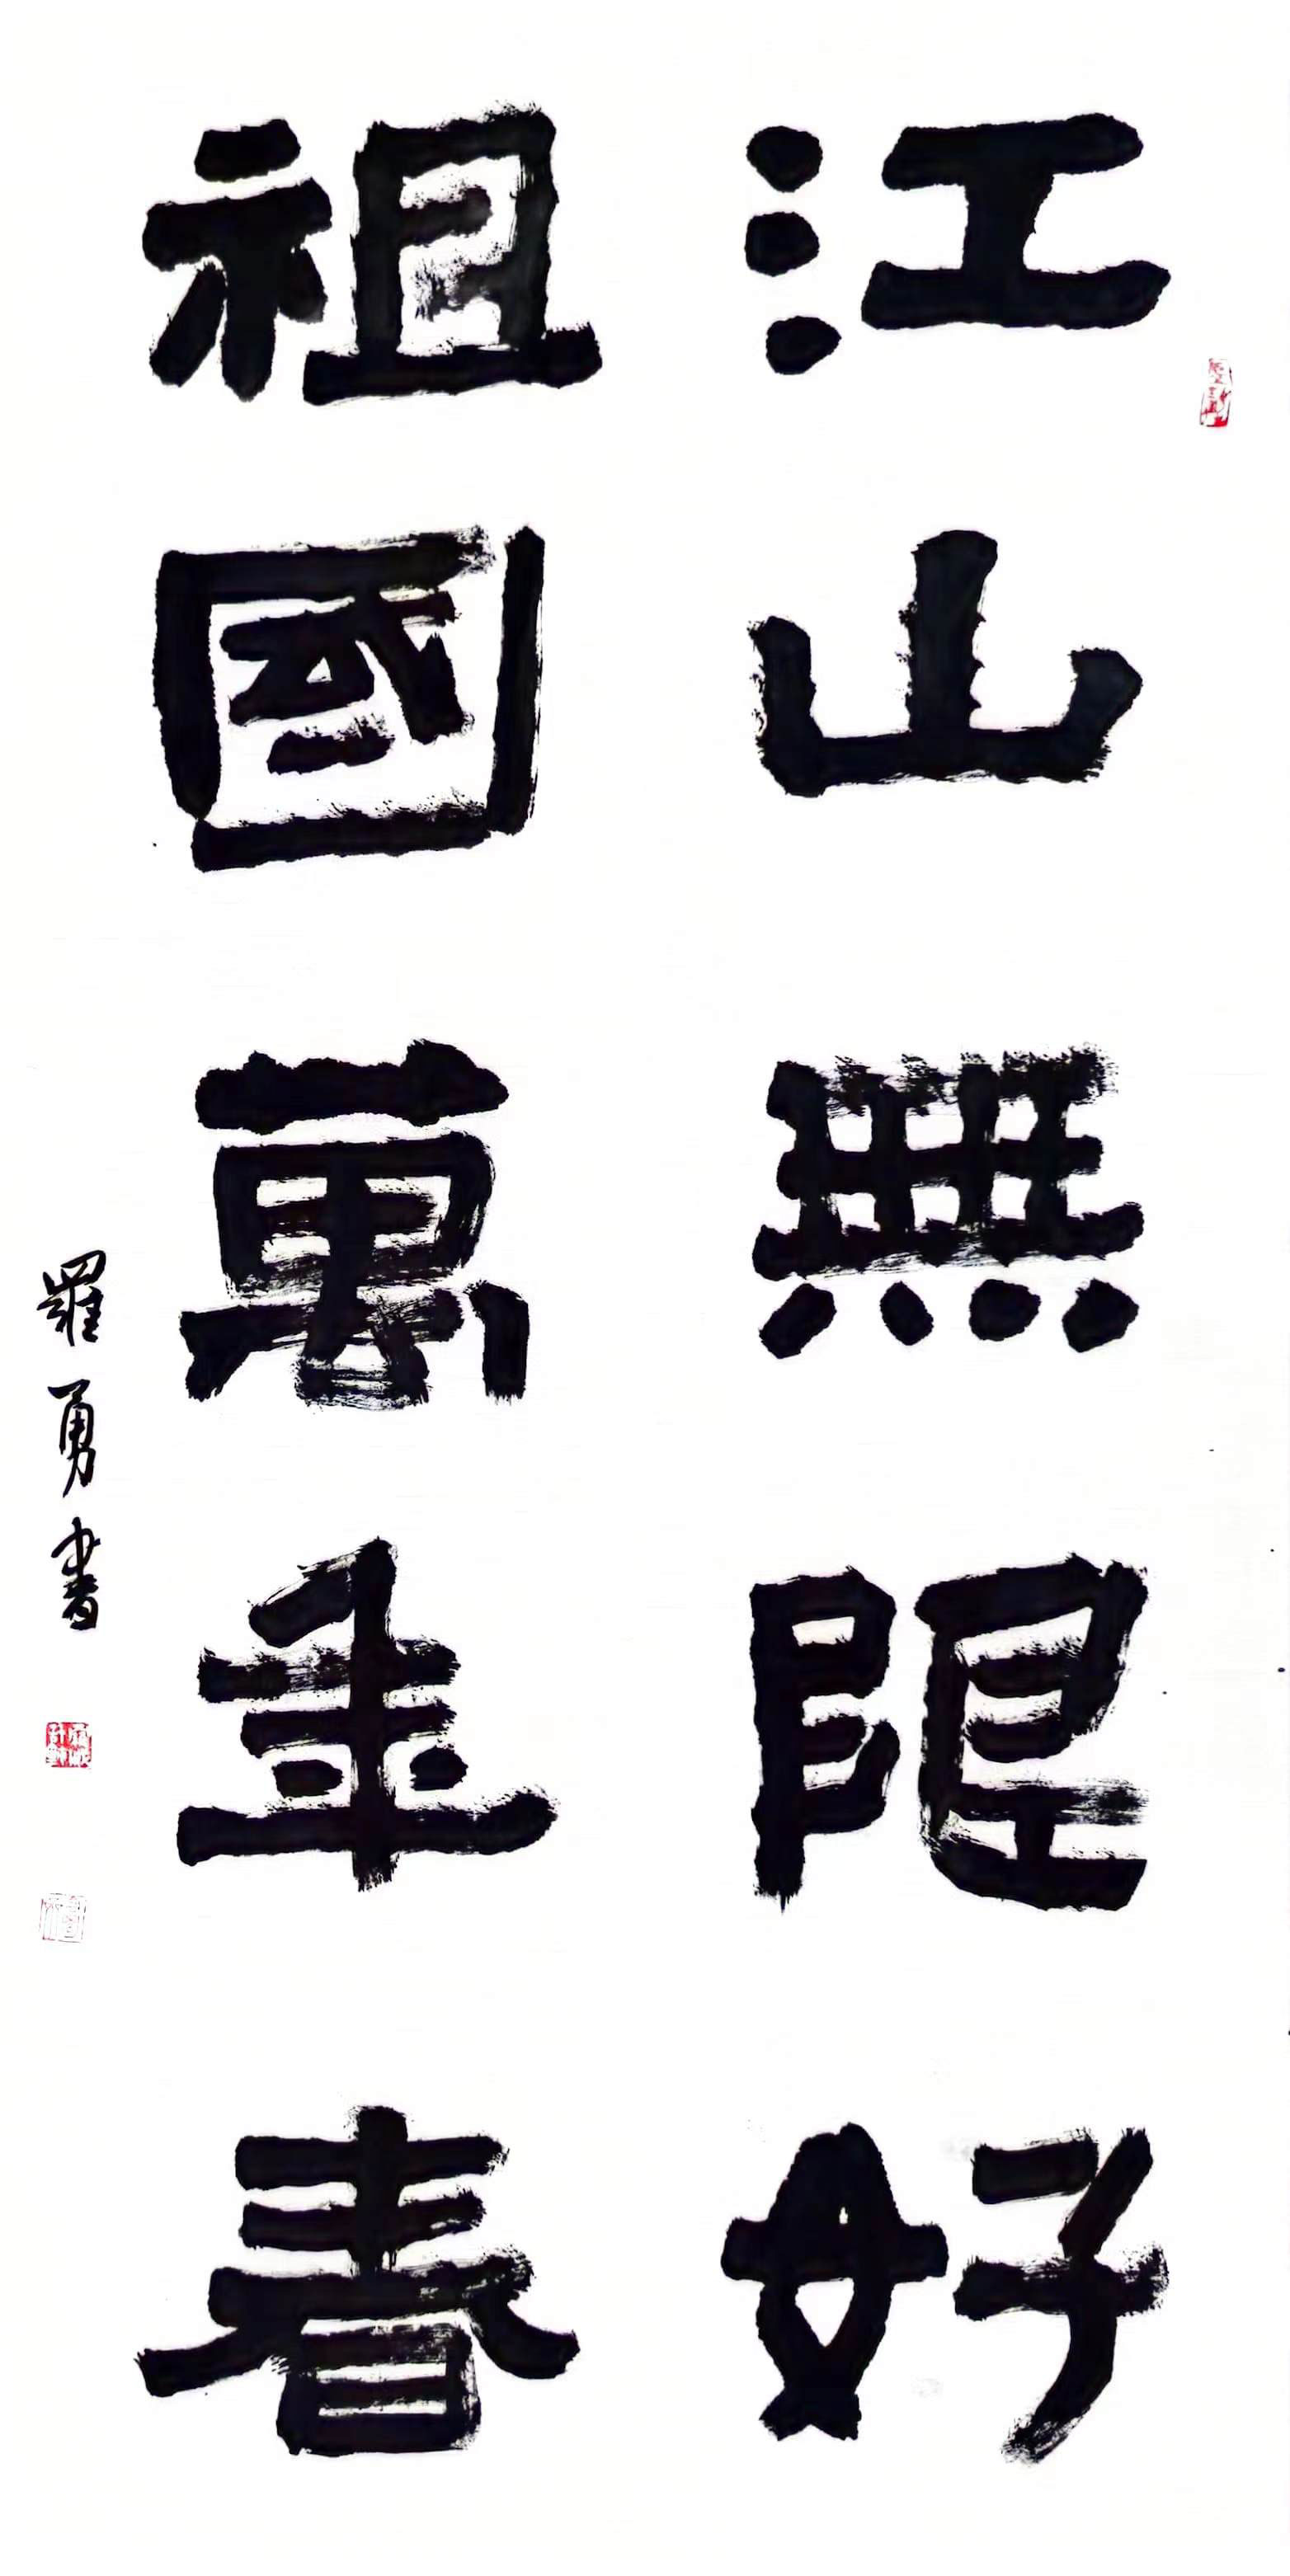 江山無限好
祖國萬年春
羅勇書